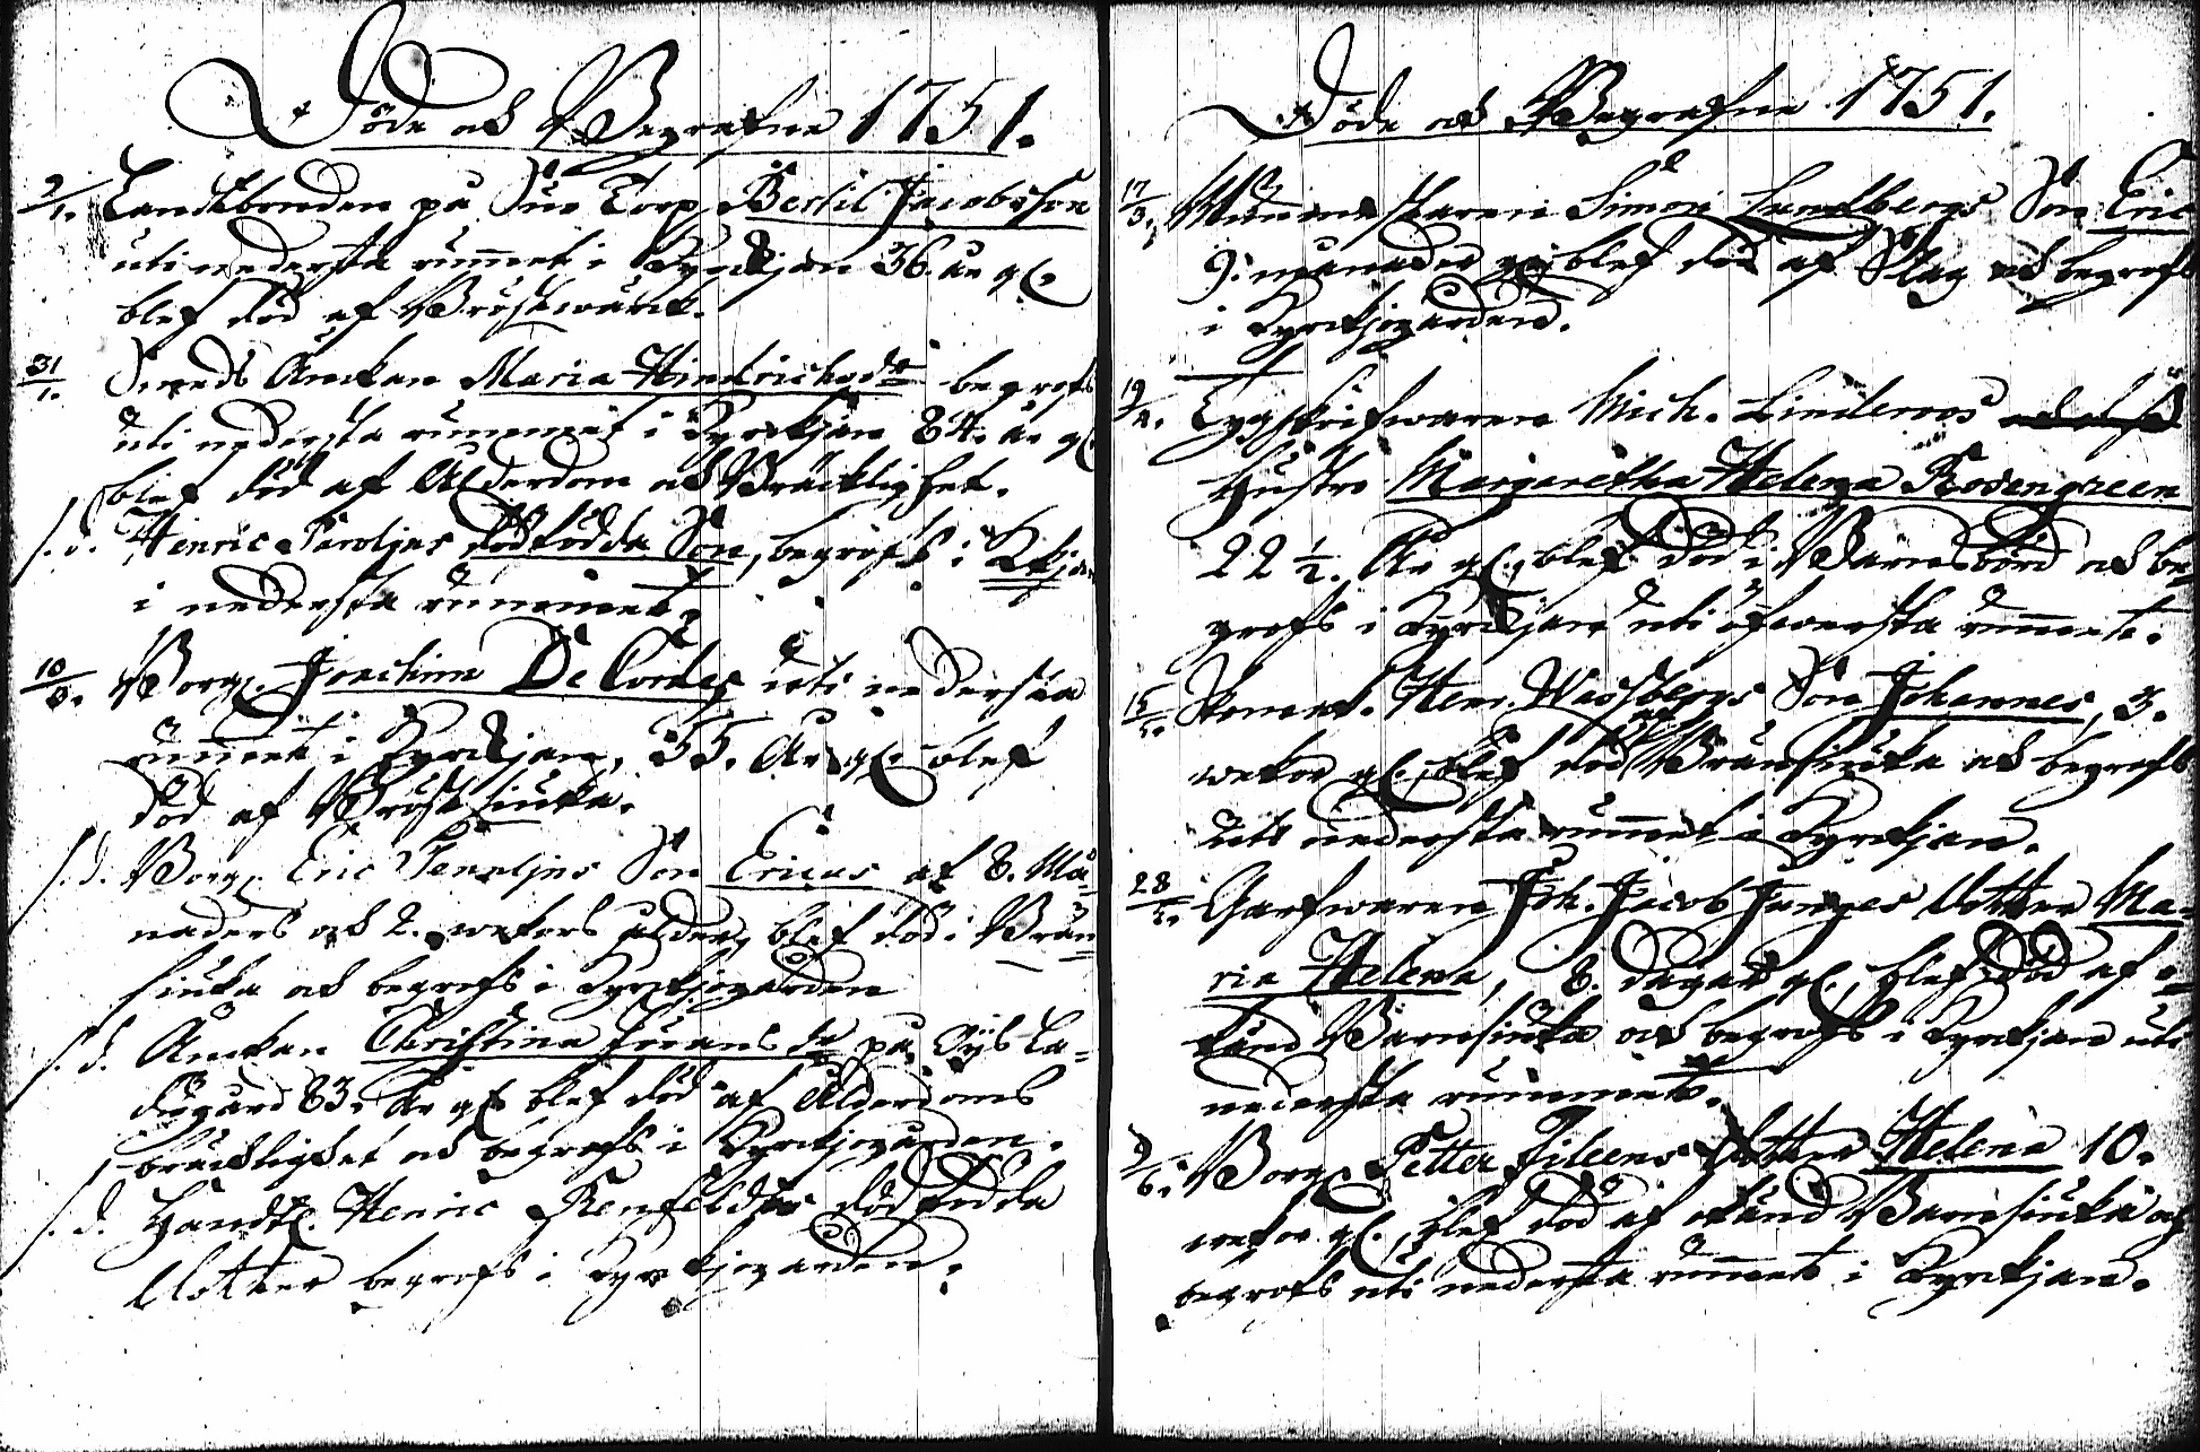 Döde och Begrafne 1751.
2/1. Landtbonden på Sue Torp Bertil Jacobsson
uti nedersta rummet i Kyrckjan 36 år gl.
blef död af Bröstwärck.
31/1. Smeds Änckan Maria Hindrichsdr begrofs
uti nedersta rummet i Kyrckjan 84. år gl.
blef död af Ålderdom och Bräcklighet.
s.d. Henric dödfödda Son, begrofs i Kkjan
i nedersta rummet.
10/3. Borg. Joachim De Cordes uti nedersta
rummet i Kyrckjan, 55. År gl. blef
död af Bröstsiuka.
s.d. Borg. Eric Son Ericus af 8. Må=
naders och 2. wekors ålder, blef död i Brån=
siuka och begrofs i Kyrckjogården
s.d. Änckan Christina Jörans dr på La=
degård 83. År gl. blef död af Ålderdoms
bräcklighet och begrofs i Kyrckjogården.
s.d. Handl. Henric dödfödda
Dotter begrofs i Kyrckjogården.
Döde och Begrafne 1751.
17/3. Simon Lundbergs Son Eric
9. månader gl. blef död af Slag och begrofs
i Kyrckjogården.
19/4. Tygskrifwaren Mich. Linderoos
Hustro Margaretha Helena Rosengreen
22 1/2. År gl., blef död i Barnsbörd och be=
grofs i Kyrckjan uti öfwersta rummet.
Hen. Wassbergs Son Johannes, 3.
wekor gl., blef död af Brånsiuka och begrofs
uti nedersta rummet i Kyrckjan.
28/4. Garfwaren Joh. Jacob Junges Dotter Ma=
ria Helena, 8. dagar gl., blef död af o=
känd Barnsiuka och begrofs i Kyrckjan uti
nedersta rummet.
2/6. Borg. Petter Dotter Helena 10.
wekor gl., blef död af okänd Barnsiuka och
begrofs uti nedersta rummet i Kyrckjan.